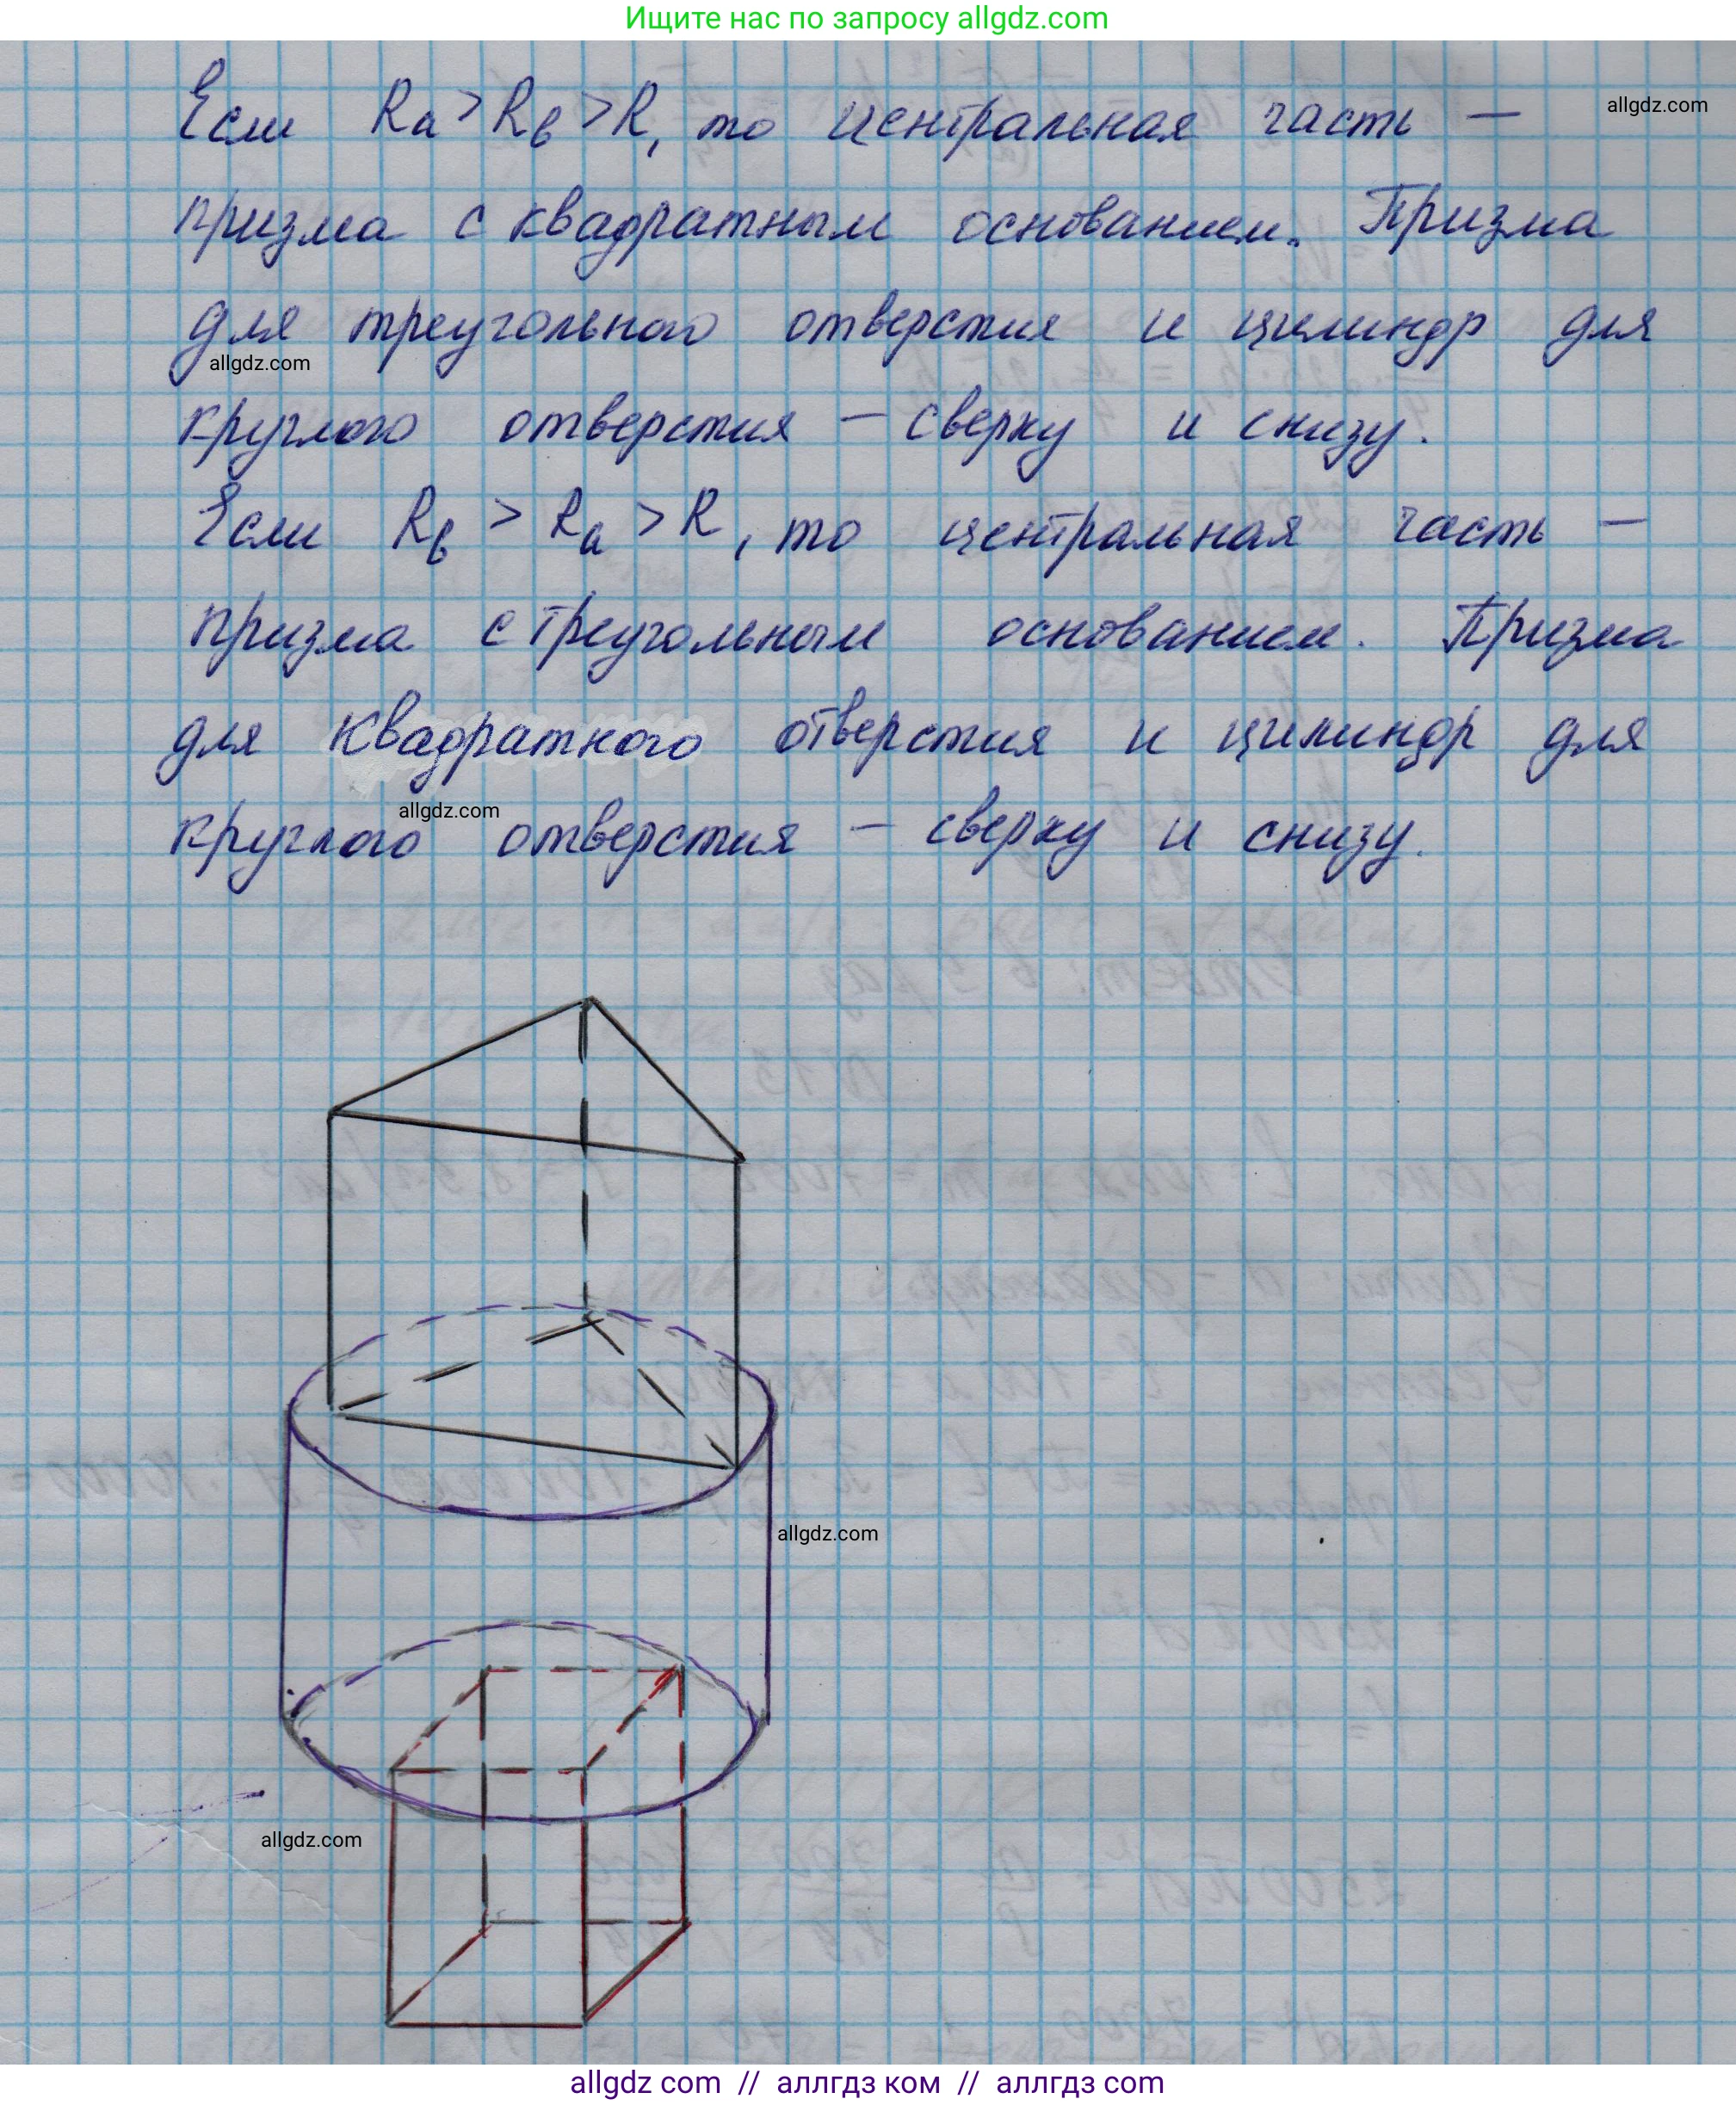 Ищите нас по запросу allgdz.com
allgdz.com
Если Rа > Rв > R, то центральная часть –
призма с квадратным основанием. Призма
для треугольного отверстия и цилиндр для
allgdz.com
круглого отверстия – сверху и снизу.
Если Rв > Rа > R, то центральная часть –
призма с треугольным основанием. Призма
для квадратного отверстия и цилиндр для
allgdz.com
круглого отверстия – сверху и снизу.
allgdz.com
allgdz.com
allgdz com // аллгдз ком // аллгдз com